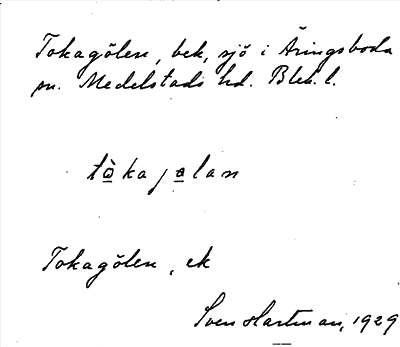 Tokagölen, bek, sjö i Äringsboda
sn. Medelstads hd. Blek. l.
tò̲ka ja̲lan
Tokagölen, ek
Sven Hartman, 1929